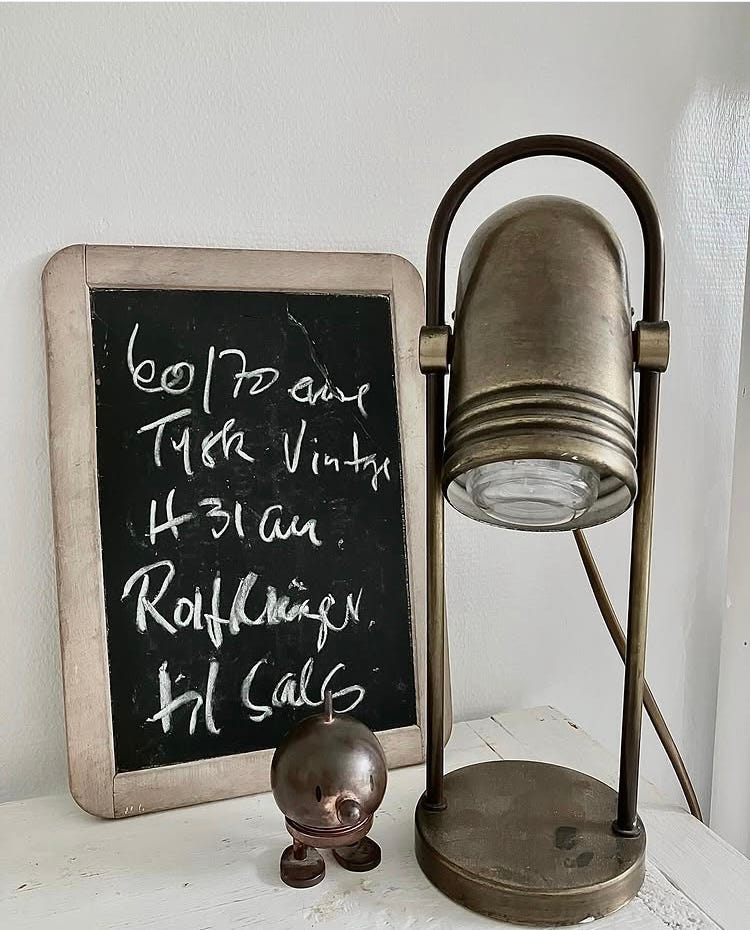 60/70 erne
Tysk Vintge
H 31 cm.
Rolf Krüger.
til Salg